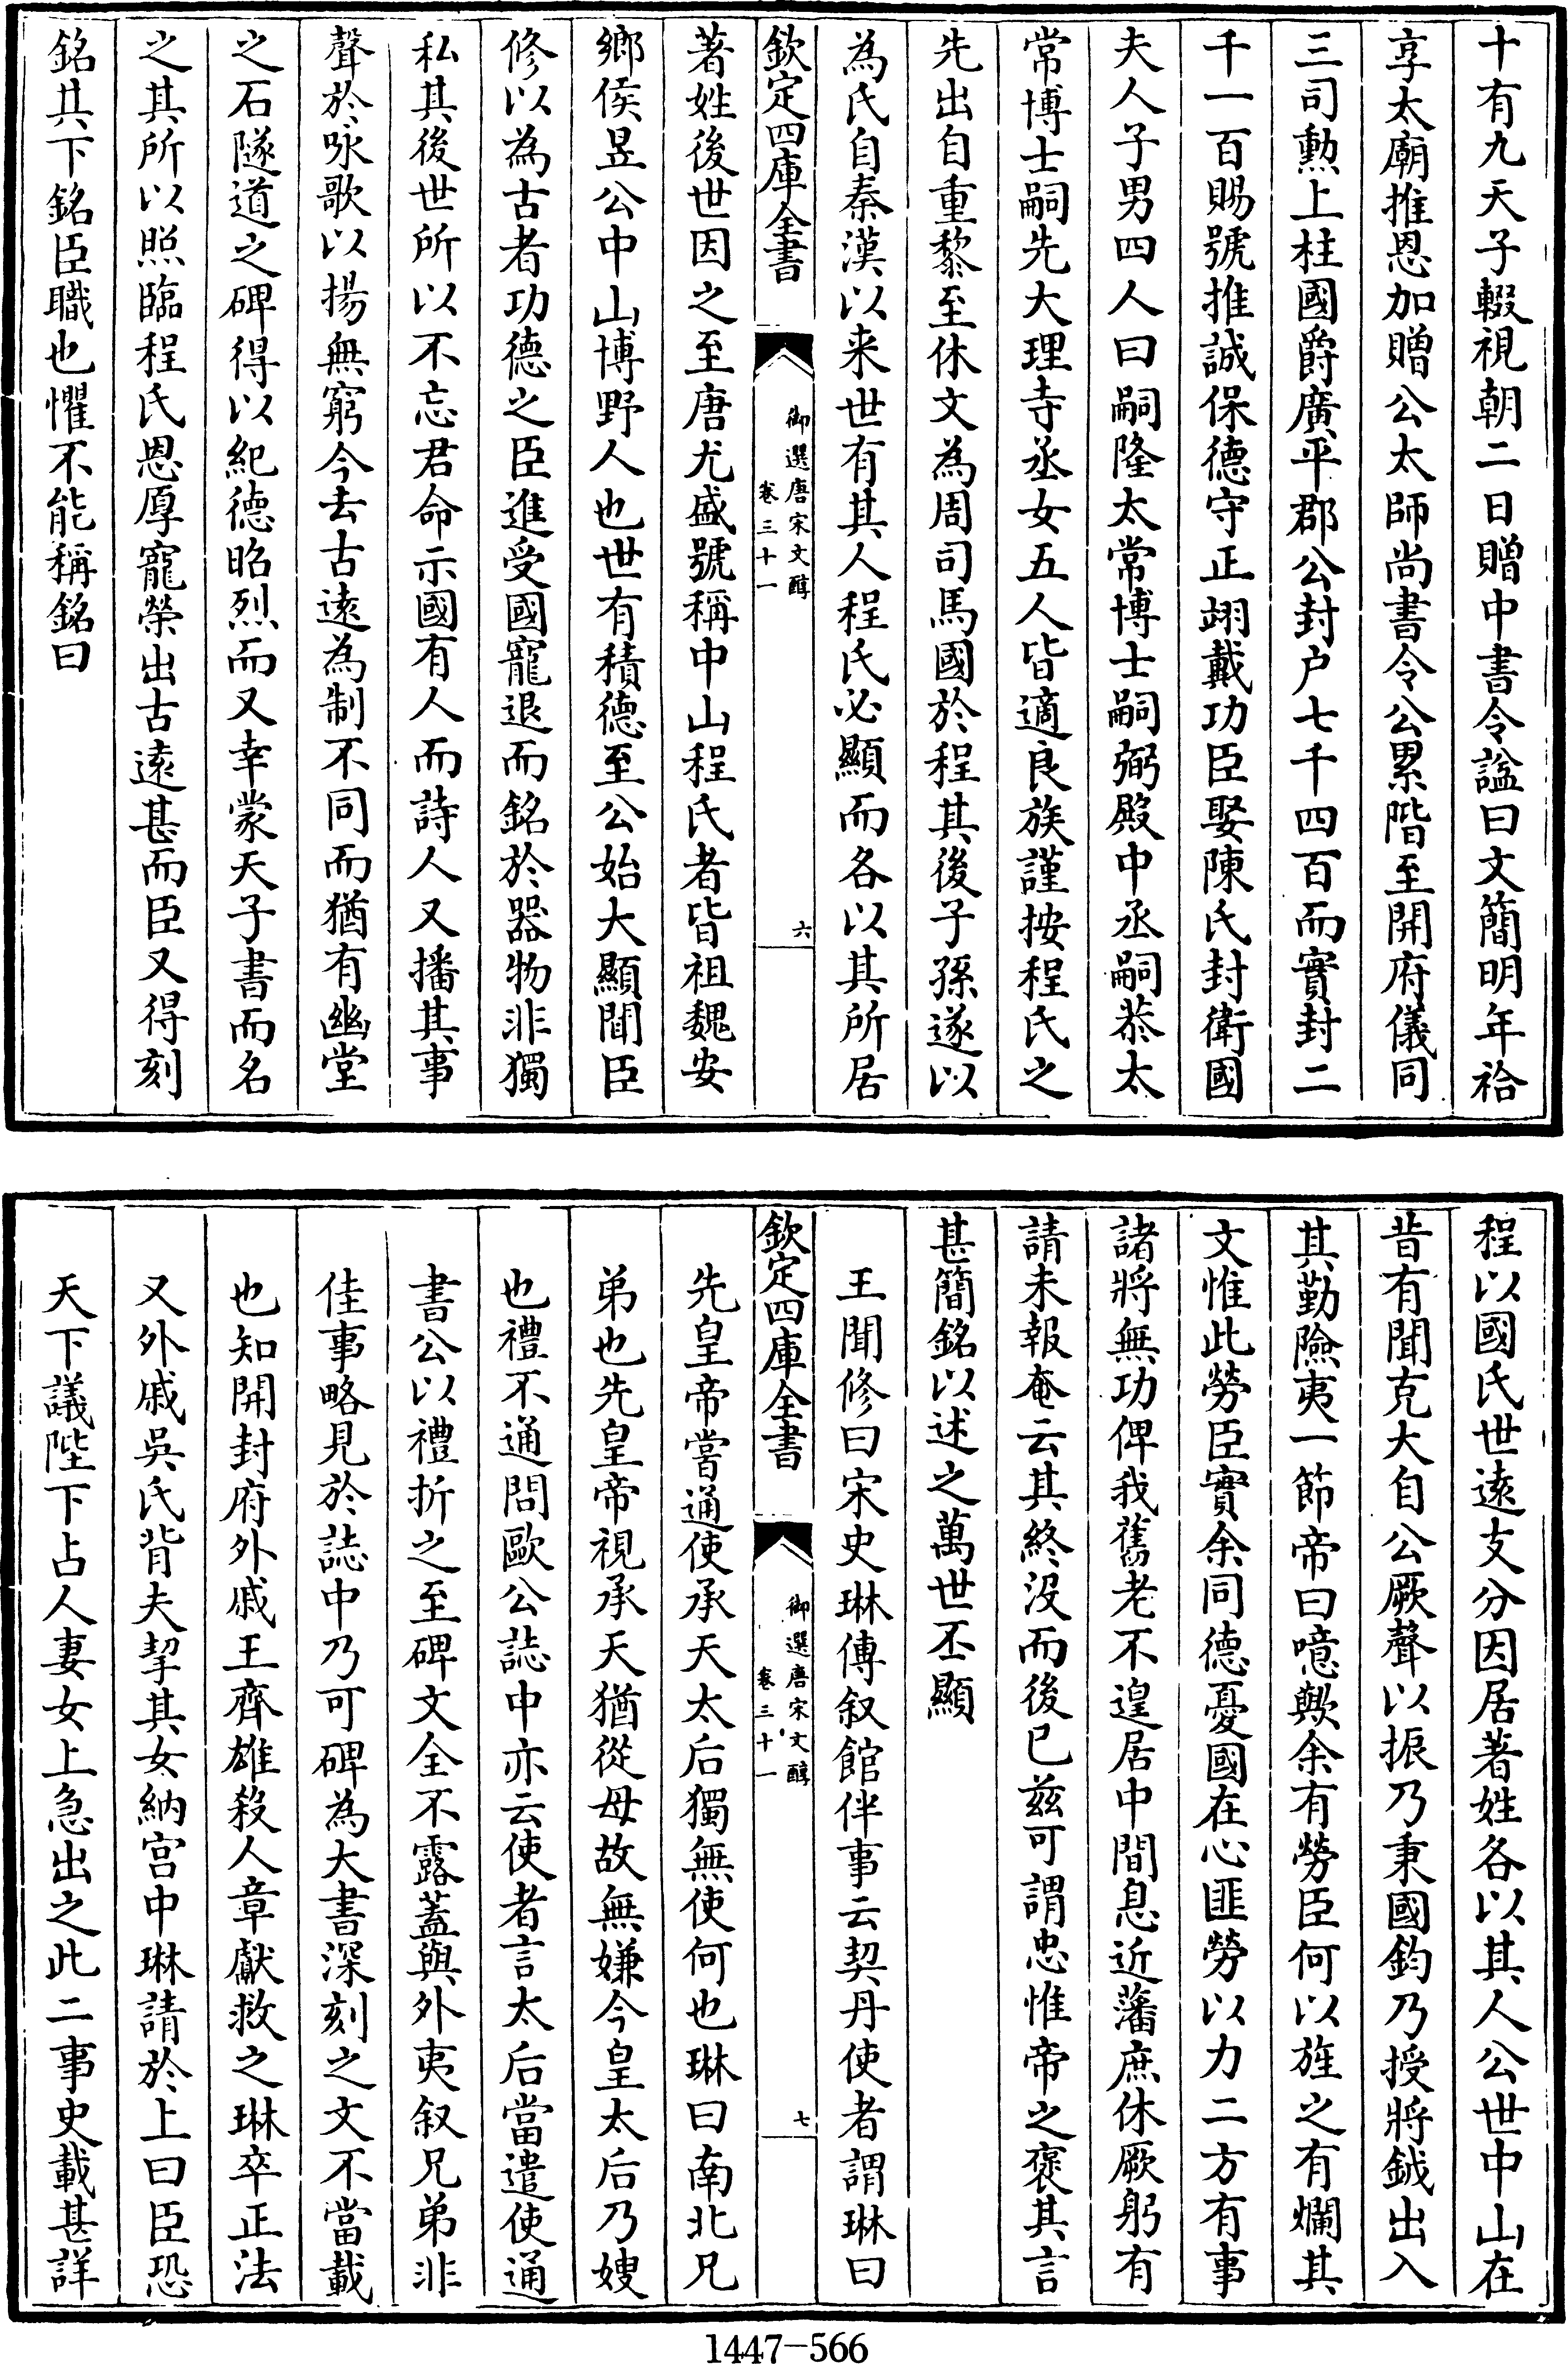 十有九天子輟視朝二日贈中書令謚曰文簡明年祫
享太廟推恩加贈公太師尚書令公累階至開府儀同
三司勲上柱國爵廣平郡公封户七千四百而實封二
千一百賜號推誠保德守正翊戴功臣娶陳氏封衛國
夫人子男四人曰嗣隆太常博士嗣弼殿中丞嗣恭太
常博士嗣先大理寺丞女五人皆適良族謹按程氏之
先出自重黎至休文為周司馬國於程其後子孫遂以
為氏自秦漢以來世有其人程氏必顯而各以其所居
欽定四庫全書
御選唐宋文醇
卷三十一
六
著姓後世因之至唐尤盛號稱中山程氏者皆祖魏安
鄉侯昱公中山博野人也世有積德至公始大顯聞臣
修以為古者功德之臣進受國寵退而銘於器物非獨
私其後世所以不忘君命示國有人而詩人又播其事
聲於咏歌以揚無窮今去古遠為制不同而猶有幽堂
之石隧道之碑得以紀德昭烈而又幸蒙天子書而名
之其所以照臨程氏恩厚寵榮出古遠甚而臣又得刻
銘其下銘臣職也懼不能稱銘曰
程以國氏世遠支分因居著姓各以其人公世中山在
昔有聞克大自公厥聲以振乃秉國鈞乃授將鉞出入
其勤險夷一節帝曰噫歟余有勞臣何以旌之有爛其
文惟此勞臣實余同德憂國在心匪勞以力二方有事
諸將無功俾我舊老不遑居中間息近藩庶休厥躬有
請未報奄云其終沒而後已兹可謂忠惟帝之褒其言
甚簡銘以述之萬世丕顯
王聞修曰宋史琳傳叙館伴事云契丹使者謂琳曰
欽定四庫全書
御選唐宋文醇
卷三十一
七
先皇帝嘗通使承天太后獨無使何也琳曰南北兄
弟也先皇帝視承天猶從母故無嫌今皇太后乃嫂
也禮不通問歐公誌中亦云使者言太后當遣使通
書公以禮折之至碑文全不露葢與外夷叙兄弟非
佳事略見於誌中乃可碑為大書深刻之文不當載
也知開封府外戚王齊雄殺人章獻救之琳卒正法
又外戚吳氏背夫挈其女納宫中琳請於上曰臣恐
天下議陛下占人妻女上急出之此二事史載甚詳
1447-566